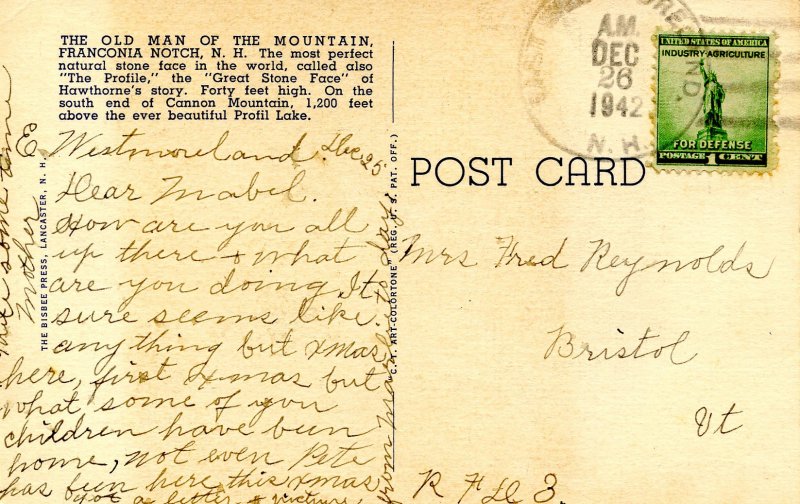 THE OLD MAN OF THE MOUNTAIN,
FRANCONIA NOTCH, N. H. The most perfect
natural stone face in the world, called also
"The Profile," the "Great Stone Face" of
Hawthorne's story. Forty feet high. On the
south end of Cannon Mountain, 1,200 feet
above the ever beautiful Profil Lake.
E Westmoreland. Dec. 25
Dear Mabel.
How are you all
up there & what
are you doing. It
sure seems like
anything but Xmas
here, first Xmas but
what some of you
children have been
home, not even Pete
has been here this Xmas
Got a letter & picture,
from
some time
Mother
THE BISBEE PRESS, LANCASTER, N. H.
C.T. ART-COLORTONE" (REG. U. S. PAT. OFF.)
POST CARD
A.M.
DEC
26
1942
N. H.
UNITED STATES OF AMERICA
INDUSTRY-AGRICULTURE
FOR DEFENSE
POSTAGE 1 CENT
Mrs Fred Reynolds
Bristol
Vt
R F D 3.